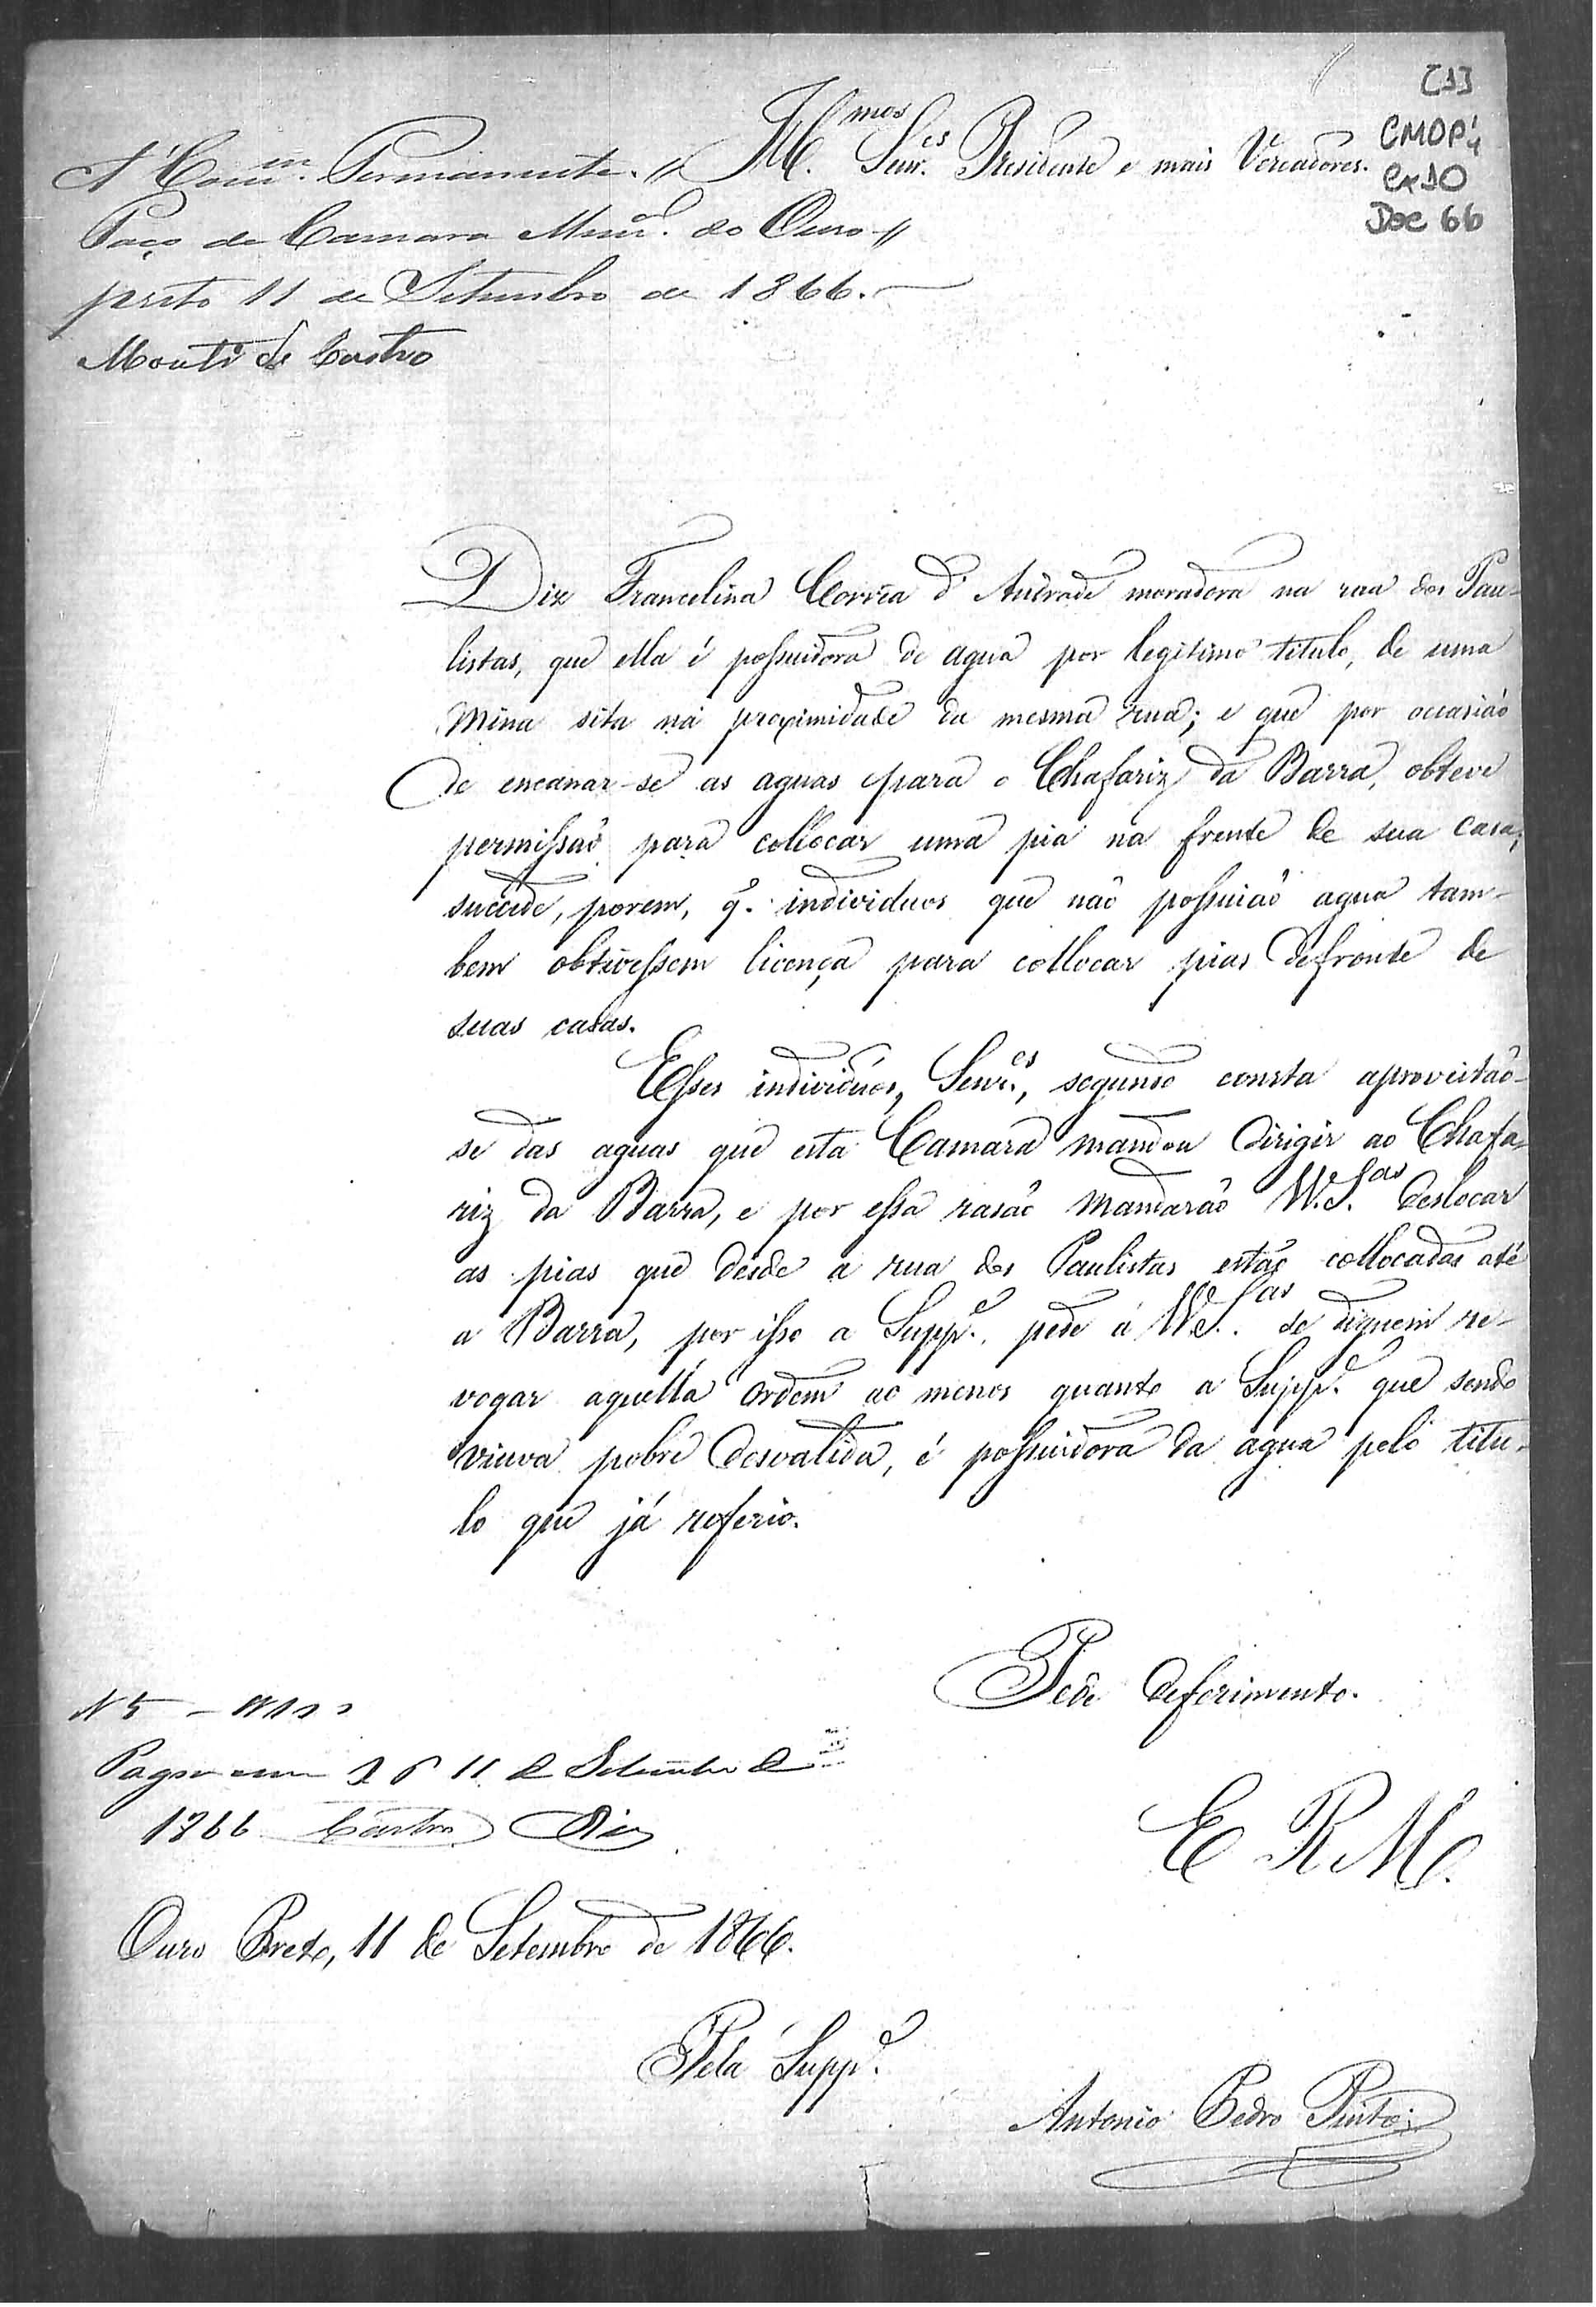 [1]
CMOP
Cx10
Doc 66
Ill.mos Senr.es Presidente e mais Vereadores.
A' Com.m Permanente.
Paço da Camara Mun. do Ouro
preto 11 de Setembro de 1866.
de Castro
Diz Francelina Corrêa d'Andrade moradora na rua dos Pau-
listas, que ella é possuidora de agua por legitimo titulo, de uma
Mina sita na proximidade da mesma rua; e que por occasião
de encanar-se as aguas para o Chafariz da Barra, obteve
permissão para collocar uma pia na frente de sua casa;
succede, porem, q. individuos que não possuião agua tam-
bem obtivessem licença para collocar pias defronte de
suas casas.
Esses individuos, Senr.es, segundo consta aproveitão-
se das aguas que esta Camara mandou dirigir ao Chafa-
riz da Barra, e por essa rasão mandarão V.V.S.as deslocar
as pias que desde a rua dos Paulistas estão collocadas até
a Barra, por isso a Supp.e pede á V.V.S.as se dignem re-
vogar aquella ordem ao menos quanto a Supp.e que sendo
viuva pobre desvalida, é possuidora da agua pelo titu-
lo que já referio.
Pede deferimento.
E R M.
N 5
Pagou 11 de Setembro de
1866 Castro Dias
Ouro Preto, 11 de Setembro de 1866.
Pela Supp.e
Antonio Pedro Pinto